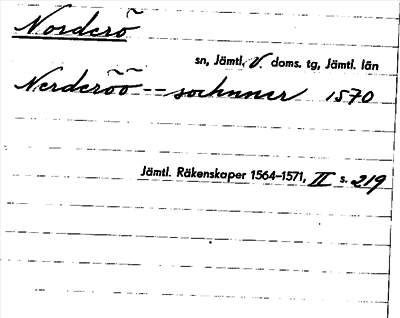 Norderö
sn, Jämtl. V. doms. tg, Jämtl. län
Nerderöö -- sochnner 1570
Jämtl. Räkenskaper 1564–1571, II s. 219